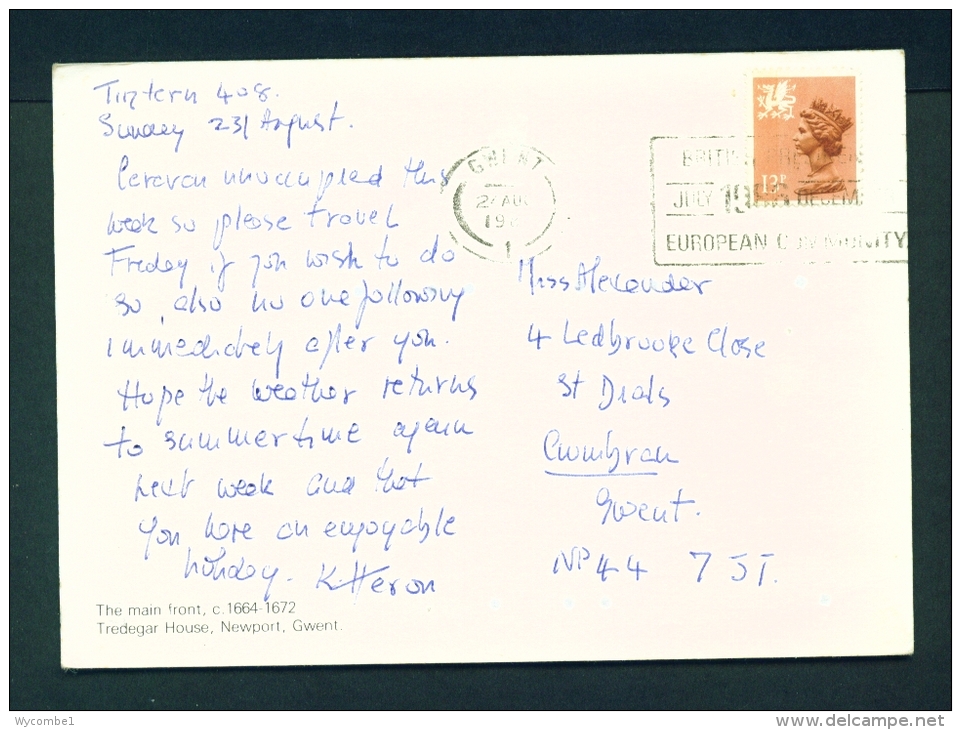 Tintern 408.
Sunday 23/ August.
Caravan unoccupied this
week so please travel
Friday if you wish to do
so, also no one following
immediately after you.
Hope the weather returns
to summertime again
next week and that
you have an enjoyable
holiday. K Heron
The main front, c.1664-1672
Tredegar House, Newport, Gwent.
GWENT
AUG
19
1
13P
BRITISH
JULY 19 DECEM
EUROPEAN COMMUNITY
Miss Alexander
4 Ledbrooke Close
St Dials
Cwmbran
Gwent.
NP44 7JT.
Wycombe1
www.delcampe.net